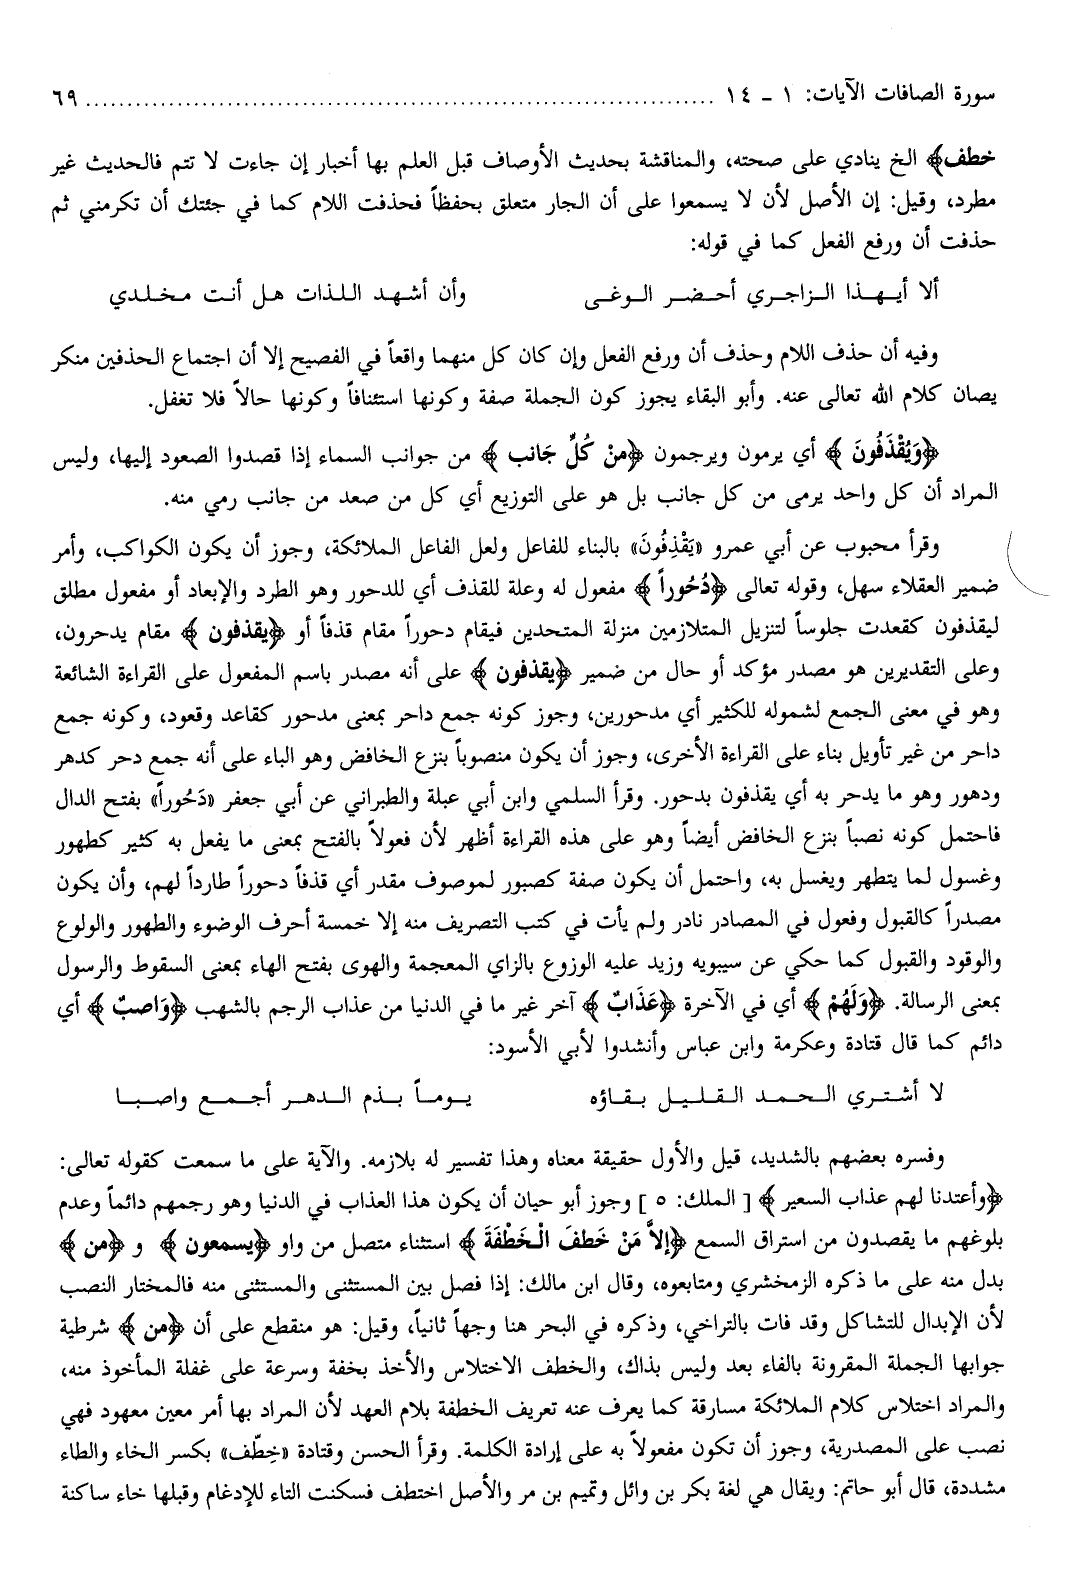 سورة الصافات الآيات: ١ - ١٤ ........................................................................... ٦٩
خطف﴾ الخ ينادي على صحته، والمناقشة بحديث الأوصاف قبل العلم بها أخبار إن جاءت لا تتم فالحديث غير
مطرد، وقيل: إن الأصل لأن لا يسمعوا على أن الجار متعلق بحفظاً فحذفت اللام كما في جئتك أن تكرمني ثم
حذفت أن ورفع الفعل كما في قوله:
ألا أيهذا الزاجري أحضر الوغى وأن أشهد اللذات هل أنت مخلدي
وفيه أن حذف اللام وحذف أن ورفع الفعل وإن كان كل منهما واقعاً في الفصيح إلا أن اجتماع الحذفين منكر
يصان كلام الله تعالى عنه. وأبو البقاء يجوز كون الجملة صفة وكونها استئنافاً وكونها حالاً فلا تغفل.
﴿وَيُقْذَفُونَ﴾ أي يرمون ويرجمون ﴿منْ كُلِّ جَانب﴾ من جوانب السماء إذا قصدوا الصعود إليها، وليس
المراد أن كل واحد يرمى من كل جانب بل هو على التوزيع أي كل من صعد من جانب رمي منه.
وقرأ محبوب عن أبي عمرو «يَقْذِفُونَ» بالبناء للفاعل ولعل الفاعل الملائكة، وجوز أن يكون الكواكب، وأمر
ضمير العقلاء سهل، وقوله تعالى ﴿دُحُوراً﴾ مفعول له وعلة للقذف أي للدحور وهو الطرد والإبعاد أو مفعول مطلق
ليقذفون كقعدت جلوساً لتنزيل المتلازمين منزلة المتحدين فيقام دحوراً مقام قذفاً أو ﴿يقذفون﴾ مقام يدحرون،
وعلى التقديرين هو مصدر مؤكد أو حال من ضمير ﴿يقذفون﴾ على أنه مصدر باسم المفعول على القراءة الشائعة
وهو في معنى الجمع لشموله للكثير أي مدحورين، وجوز كونه جمع داحر بمعنى مدحور كقاعد وقعود، وكونه جمع
داحر من غير تأويل بناء على القراءة الأخرى، وجوز أن يكون منصوباً بنزع الخافض وهو الباء على أنه جمع دحر كدهر
ودهور وهو ما يدحر به أي يقذفون بدحور. وقرأ السلمي وابن أبي عبلة والطبراني عن أبي جعفر «دَحُوراً» بفتح الدال
فاحتمل كونه نصباً بنزع الخافض أيضاً وهو على هذه القراءة أظهر لأن فعولاً بالفتح بمعنى ما يفعل به كثير كطهور
وغسول لما يتطهر ويغسل به، واحتمل أن يكون صفة كصبور لموصوف مقدر أي قذفاً دحوراً طارداً لهم، وأن يكون
مصدراً كالقبول وفعول في المصادر نادر ولم يأت في كتب التصريف منه إلا خمسة أحرف الوضوء والطهور والولوع
والوقود والقبول كما حكي عن سيبويه وزيد عليه الوزوع بالزاي المعجمة والهوى بفتح الهاء بمعنى السقوط والرسول
بمعنى الرسالة. ﴿وَلَهُمْ﴾ أي في الآخرة ﴿عَذَابٌ﴾ آخر غير ما في الدنيا من عذاب الرجم بالشهب ﴿وَاصبٌ﴾ أي
دائم كما قال قتادة وعكرمة وابن عباس وأنشدوا لأبي الأسود:
لا أشتري الحمد القليل بقاؤه يوماً بذم الدهر أجمع واصبا
وفسره بعضهم بالشديد، قيل والأول حقيقة معناه وهذا تفسير له بلازمه. والآية على ما سمعت كقوله تعالى:
﴿وأعتدنا لهم عذاب السعير﴾ [الملك: ٥] وجوز أبو حيان أن يكون هذا العذاب في الدنيا وهو رجمهم دائماً وعدم
بلوغهم ما يقصدون من استراق السمع ﴿إلاَّ مَنْ خَطفَ الْخَطْفَةَ﴾ استثناء متصل من واو ﴿يسمعون﴾ و ﴿من﴾
بدل منه على ما ذكره الزمخشري ومتابعوه، وقال ابن مالك: إذا فصل بين المستثنى والمستثنى منه فالمختار النصب
لأن الإبدال للتشاكل وقد فات بالتراخي، وذكره في البحر هنا وجهاً ثانياً، وقيل: هو منقطع على أن ﴿من﴾ شرطية
جوابها الجملة المقرونة بالفاء بعد وليس بذاك، والخطف الاختلاس والأخذ بخفة وسرعة على غفلة المأخوذ منه،
والمراد اختلاس كلام الملائكة مسارقة كما يعرف عنه تعريف الخطفة بلام العهد لأن المراد بها أمر معين معهود فهي
نصب على المصدرية، وجوز أن تكون مفعولاً به على إرادة الكلمة. وقرأ الحسن وقتادة «خِطّف» بكسر الخاء والطاء
مشددة، قال أبو حاتم: ويقال هي لغة بكر بن وائل وتميم بن مر والأصل اختطف فسكنت التاء للإدغام وقبلها خاء ساكنة